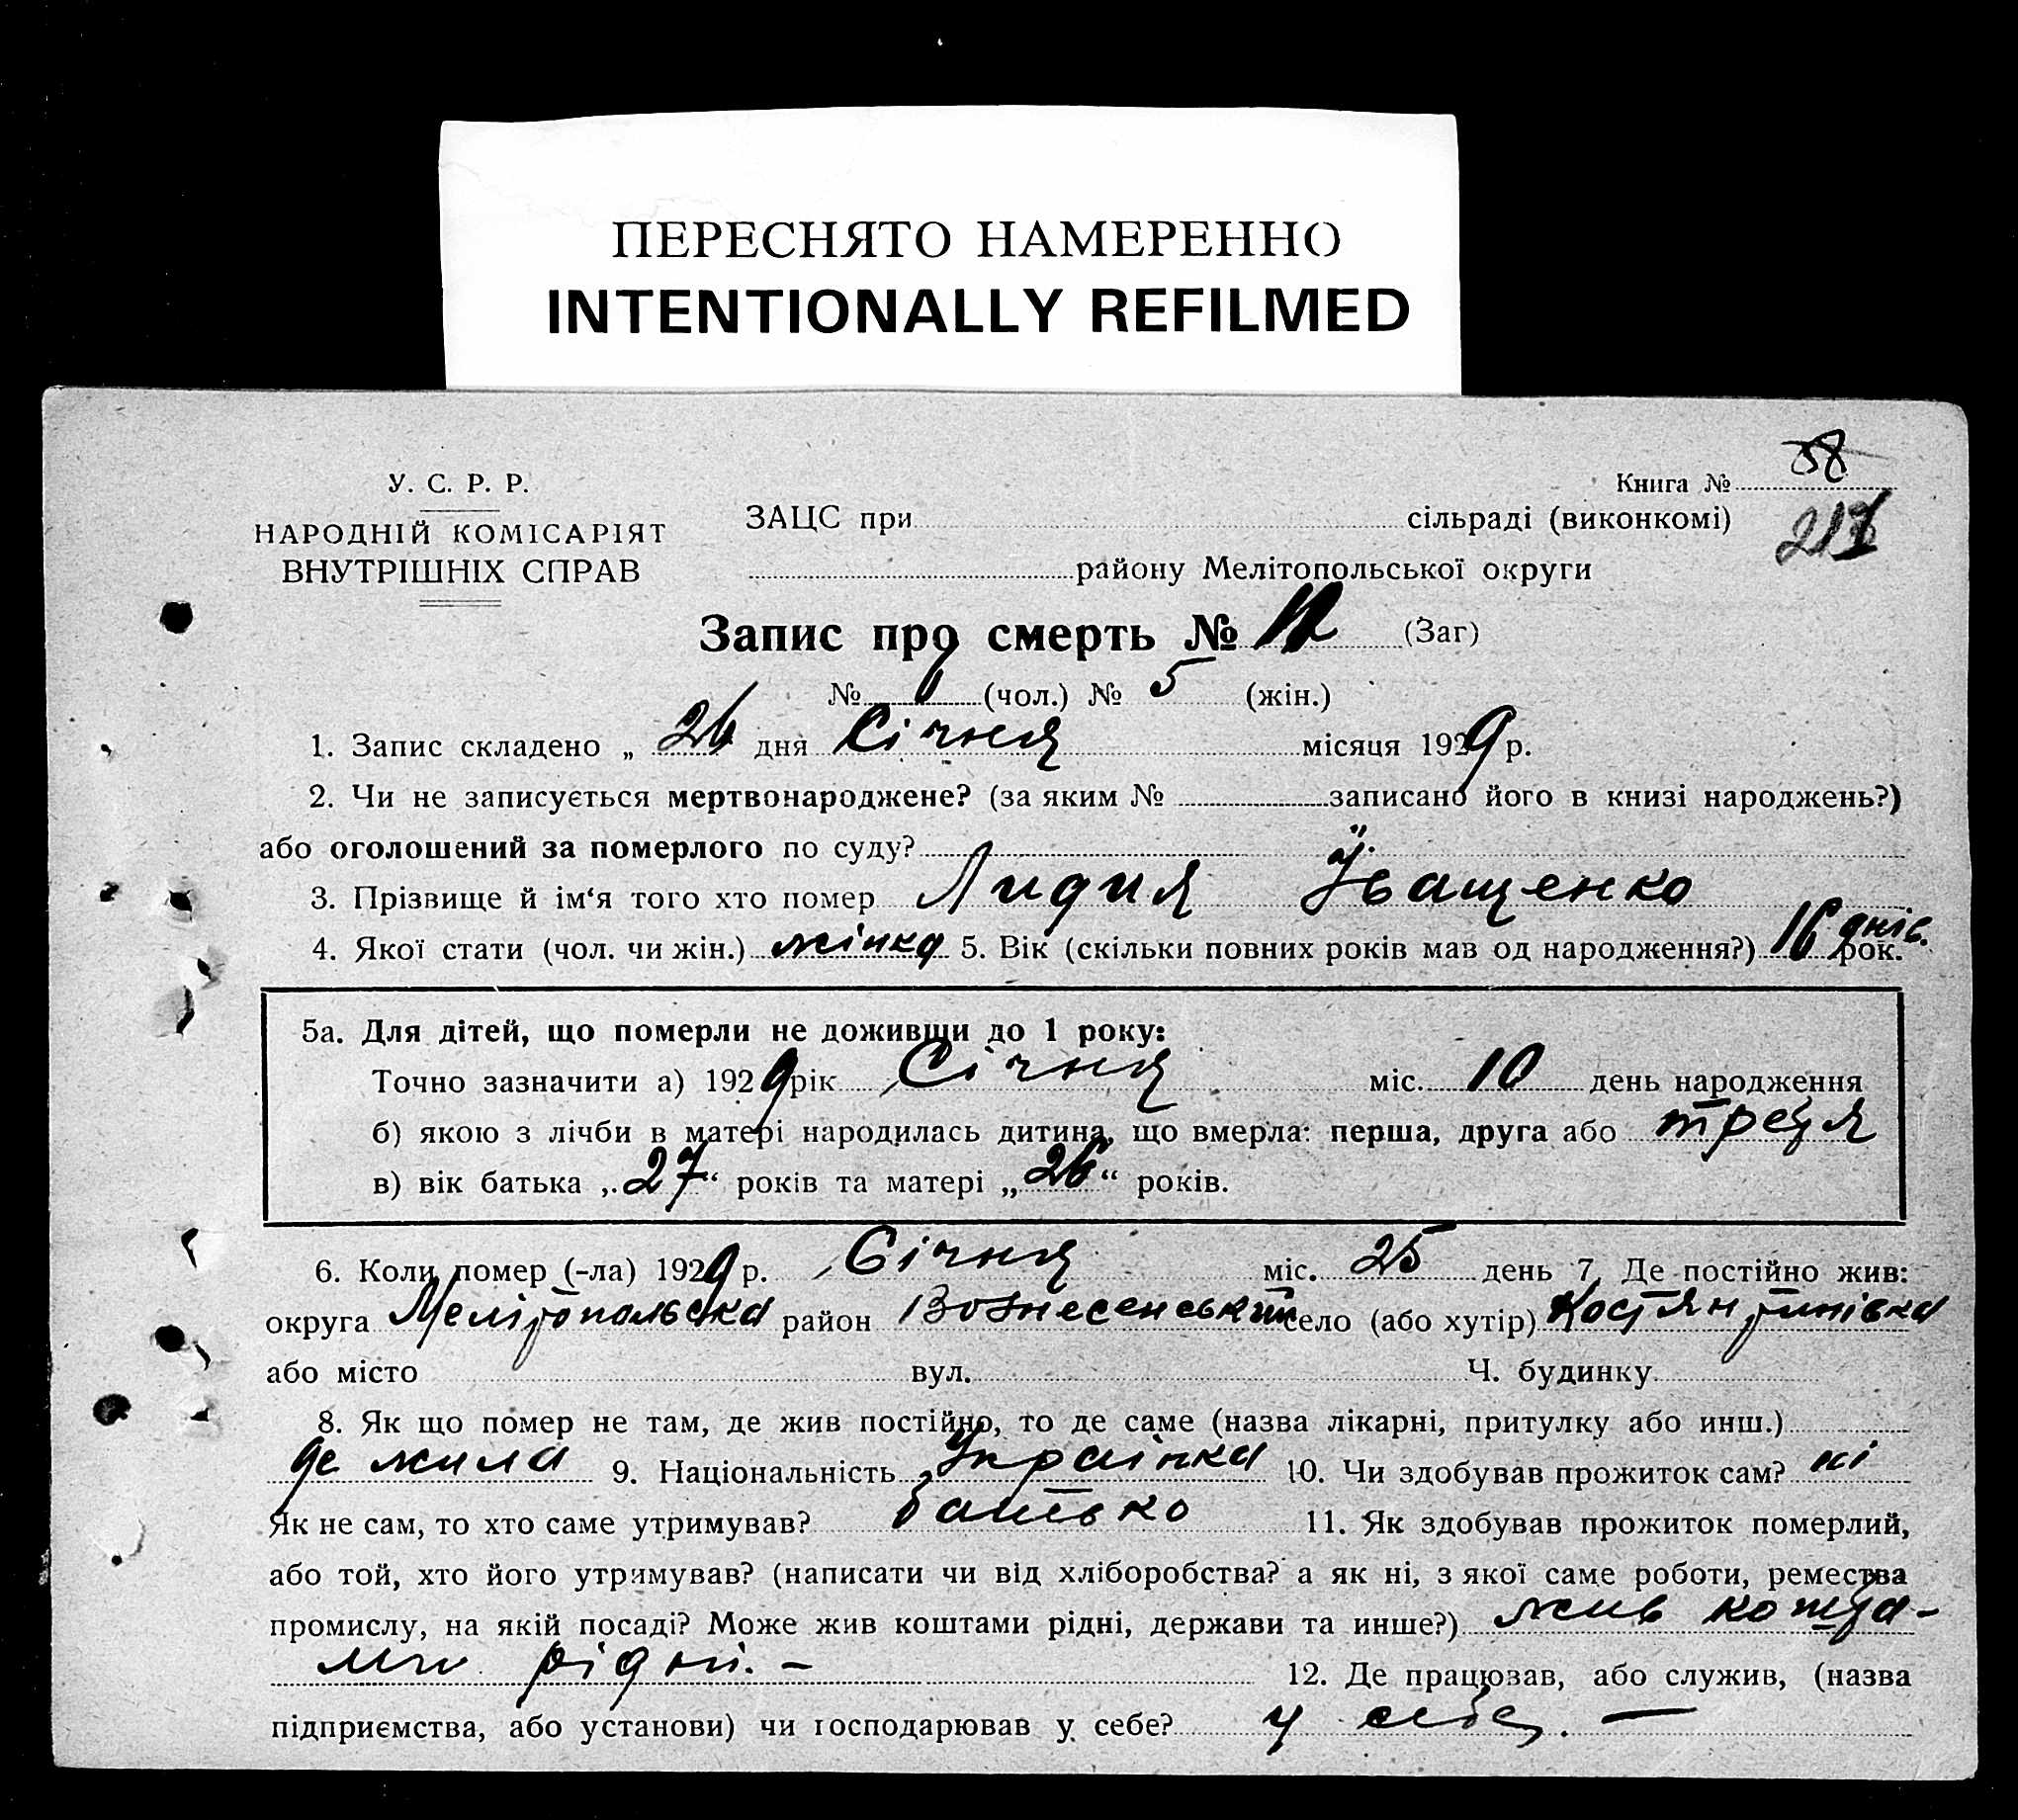 ПЕРЕСНЯТО НАМЕРЕННО
INTENTIONALLY REFILMED
У. С. Р. Р.
НАРОДНІЙ КОМІСАРІЯТ
ВНУТРІШНІХ СПРАВ
Книга № 58
ЗАЦС при сільраді (виконкомі)
району Мелітопольської округи
Запис про смерть № 12 (Заг)
№ (чол.) № 5 (жін.)
1. Запис складено „ 26 дня Січня місяця 1929 р.
2. Чи не записується мертвонароджене? (за яким № записано його в книзі народжень?)
або оголошений за померлого по суду?
3. Прізвище й ім‘я того хто помер Лидия Іващенко
4. Якої стати (чол. чи жін.) жінка 5. Вік (скільки повних років мав од народження?) 16 днів. рок.
5а. Для дітей, що померли не доживши до 1 року:
Точно зазначити а) 1929 рік Січня міс. 10 день народження
б) якою з лічби в матері народилась дитина, що вмерла: перша, друга або третя
в) вік батька „27“ років та матері „26“ років.
6. Коли помер (-ла) 1929 р. Січня міс. 25 день 7. Де постійно жив:
округа Мелітопольська район Вознесенський село (або хутір) Костянтинівка
або місто вул. Ч. будинку
8. Як що помер не там, де жив постійно, то де саме (назва лікарні, притулку або инш.)
де жила 9. Національність Українка 10. Чи здобував прожиток сам? ні
Як не сам, то хто саме утримував? батько 11. Як здобував прожиток померлий,
або той, хто його утримував? (написати чи від хліборобства? а як ні, з якої саме роботи, ремества
промислу, на якій посаді? Може жив коштами рідні, держави та инше?) жив кошта-
ми рідні. – 12. Де працював, або служив, (назва
підприємства, або установи) чи господарював у себе? у себе. —